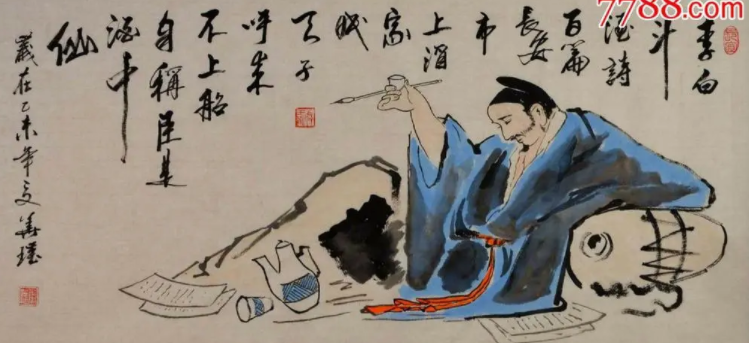 7788.com
李白
斗
酒詩
百篇
長安
市
上酒
家
眠
天子
呼來
不上船
自稱臣是
酒中
仙
歲在乙未年